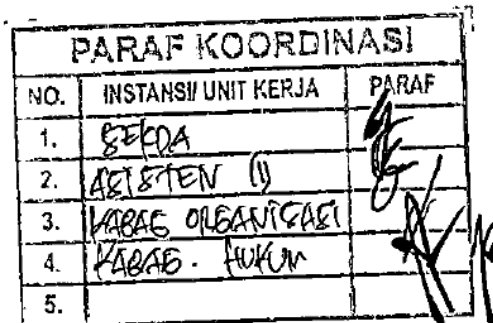 PARAF KOORDINASI
NO. INSTANSI/ UNIT KERJA PARAF
1. SEKDA
2. ASISTEN
3. KABAG ORGANISASI
4. KABAG. HUKUM
5.